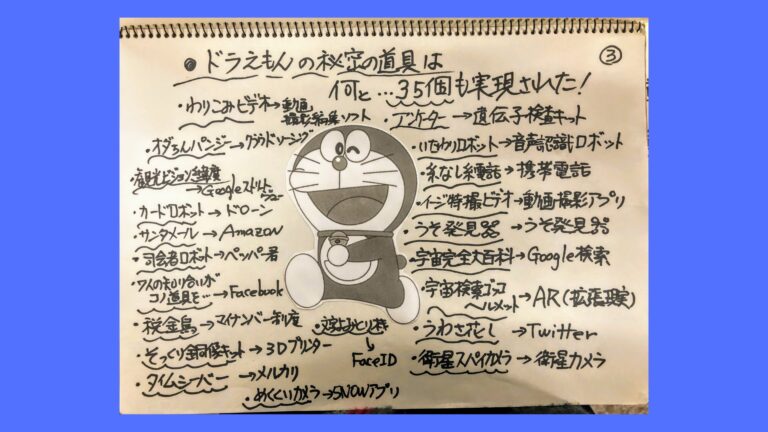 ③
●ドラえもんの秘密の道具は
何と…35個も実現された!
・わりこみビデオ→動画
撮影編集ソフト
・オダちんパンジー→クラウドソーシング
・観光ビジョン
→Googleストリートビュー
・カードロボット→ドローン
・サンタメール→Amazon
・司会者ロボット→ペッパー君
・7人の知り合いが
コノ道具を…→Facebook
・税金鳥→マイナンバー制度
・そっくり銅像キット→3Dプリンター
・タイムシーバー→メルカリ
・めくくいカメラ→SNOWアプリ
→FaceID
→遺伝子検査キット
・いたわりロボット→音声認識ロボット
・糸なし糸電話→携帯電話
・イージー特撮ビデオ→動画撮影アプリ
・うそ発見器→うそ発見器
・宇宙完全大百科→Google検索
・宇宙探検ゴッコ
ヘルメット→AR(拡張現実)
・うわさ花し→Twitter
・衛星スパイカメラ→衛星カメラ